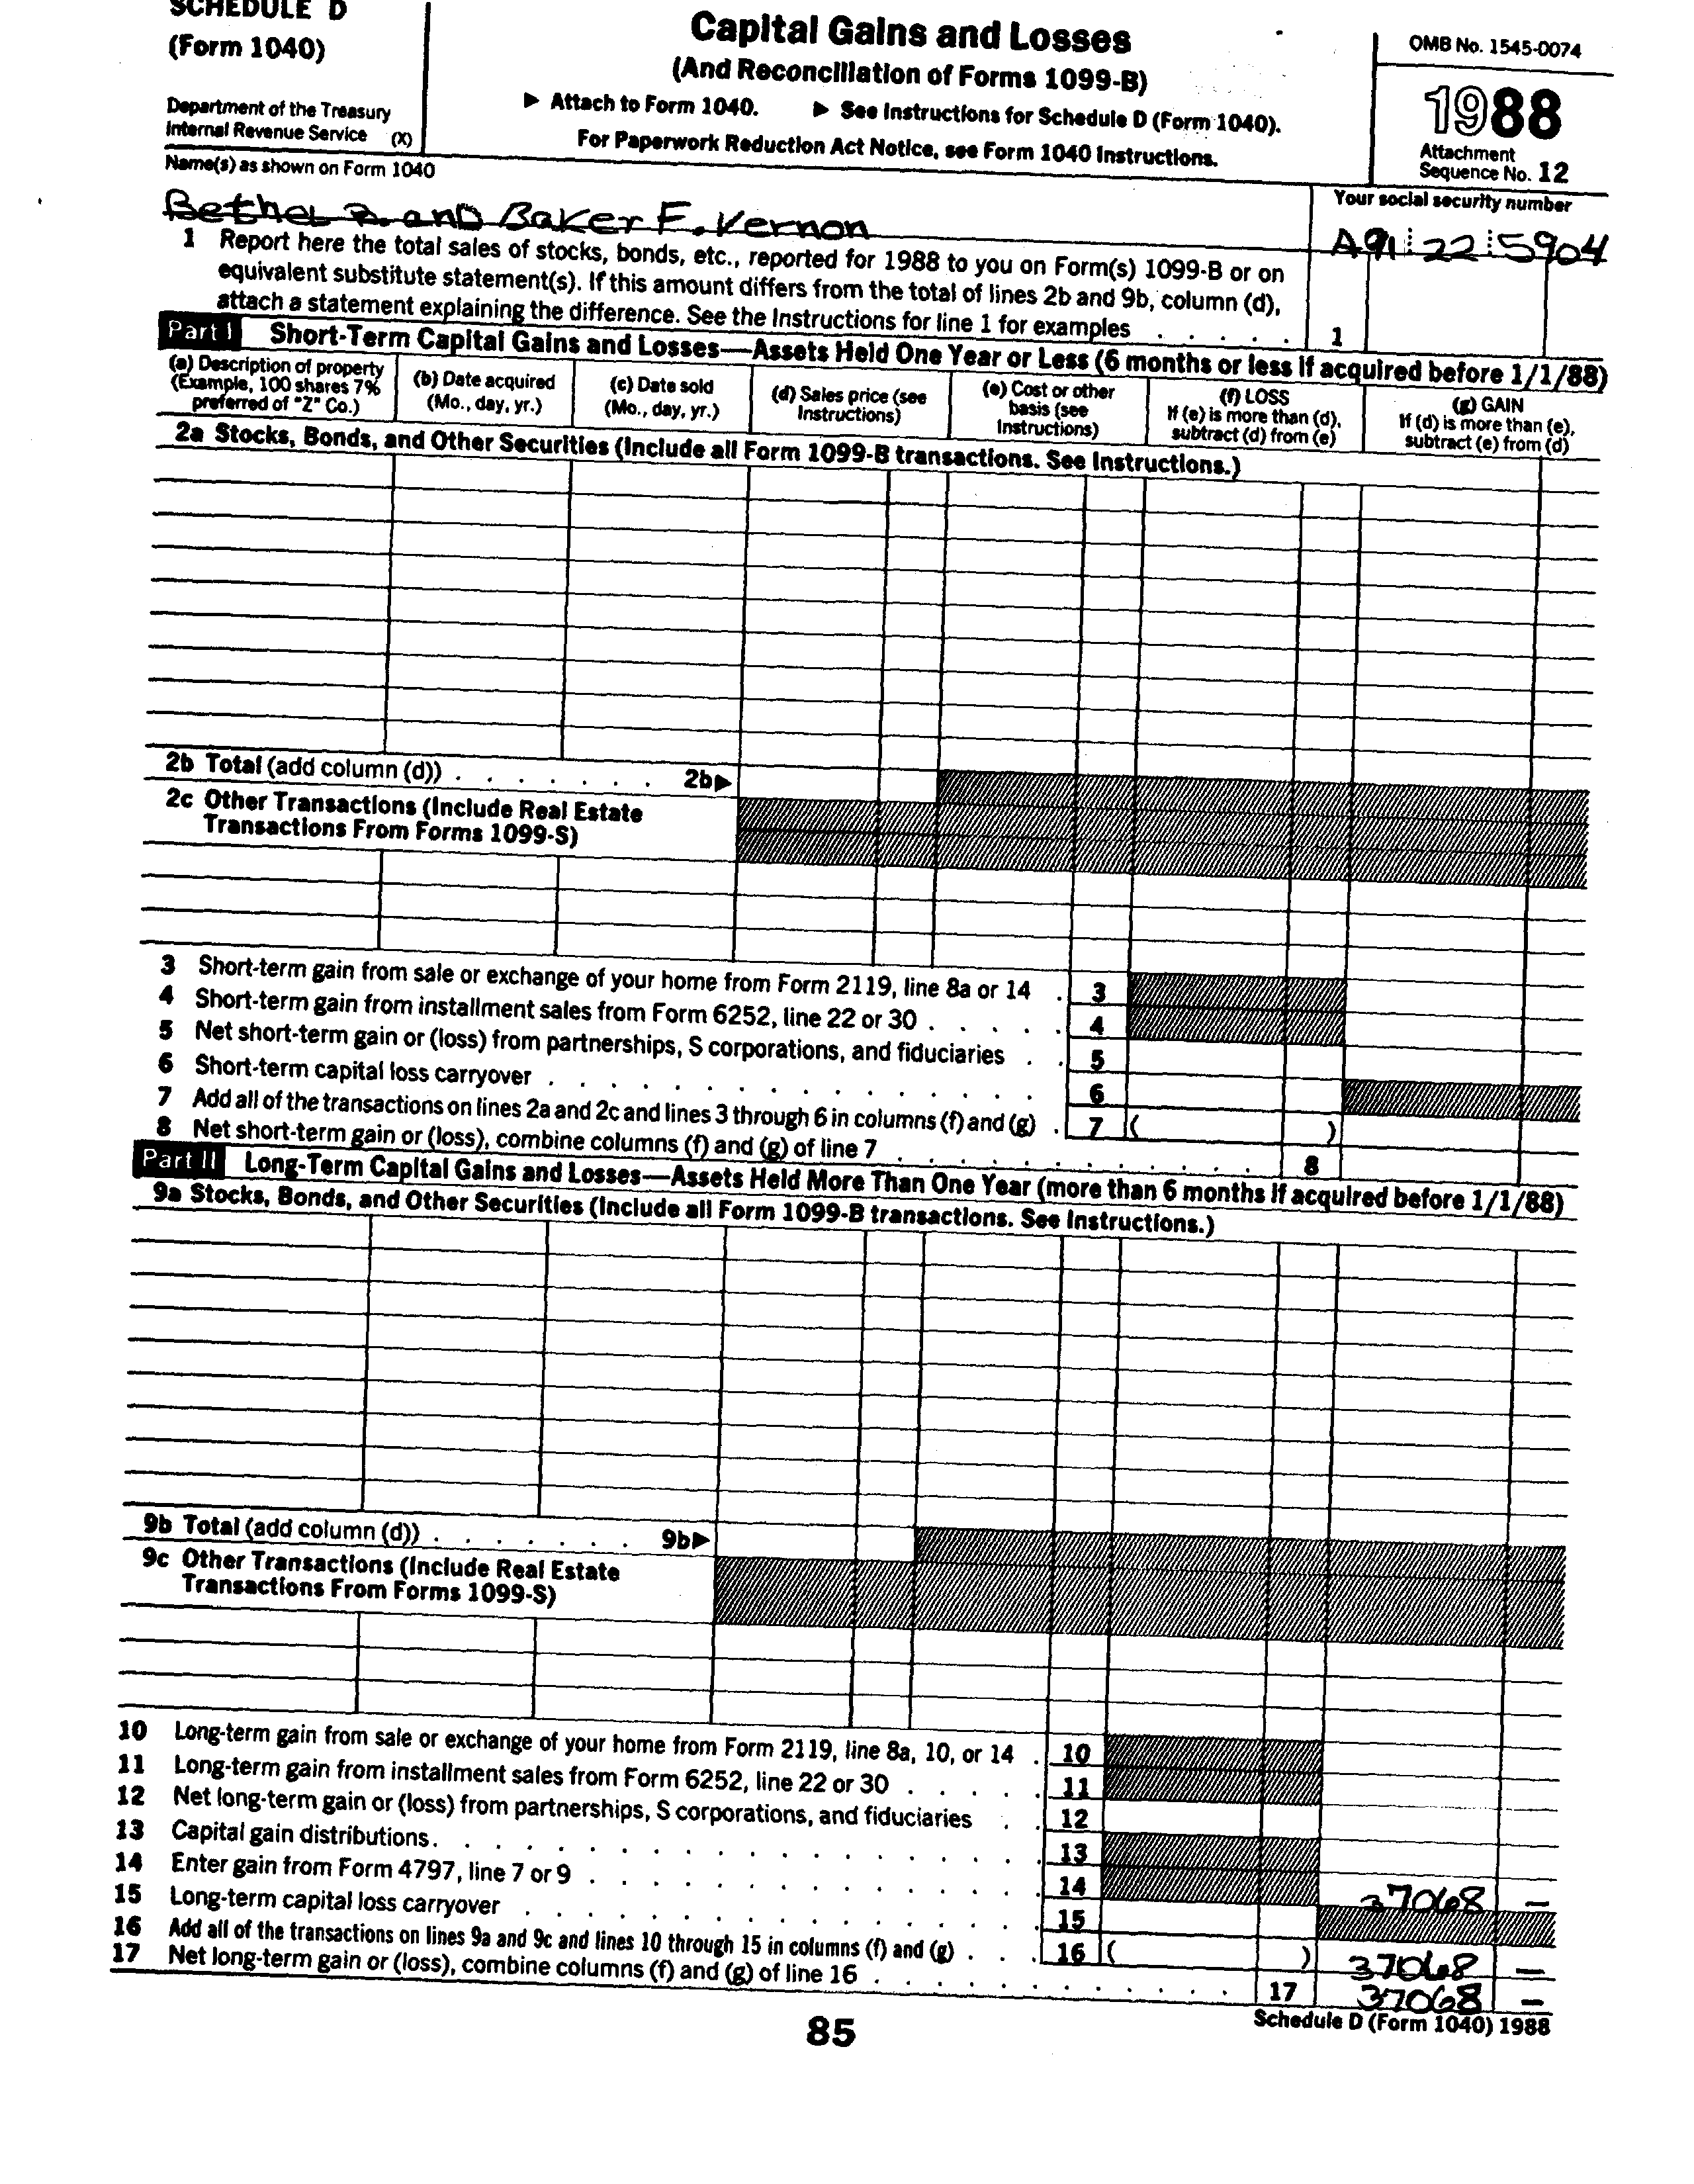 SCHEDULE D
(Form 1040)
Department of the Treasury
Internal Revenue Service (X)
Capital Gains and Losses
(And Reconciliation of Forms 1099-B)
▶ Attach to Form 1040. ▶ See Instructions for Schedule D (Form 1040).
For Paperwork Reduction Act Notice, see Form 1040 Instructions.
OMB No. 1545-0074
1988
Attachment
Sequence No. 12
Name(s) as shown on Form 1040
Bethel B. and Baker F. Vernon
Your social security number
A91 22 5904
1 Report here the total sales of stocks, bonds, etc., reported for 1988 to you on Form(s) 1099-B or on
equivalent substitute statement(s). If this amount differs from the total of lines 2b and 9b, column (d),
attach a statement explaining the difference. See the Instructions for line 1 for examples . . . . . 1
Part I Short-Term Capital Gains and Losses—Assets Held One Year or Less (6 months or less if acquired before 1/1/88)
(a) Description of property
(Example, 100 shares 7%
preferred of "Z" Co.)
(b) Date acquired
(Mo., day, yr.)
(c) Date sold
(Mo., day, yr.)
(d) Sales price (see
Instructions)
(e) Cost or other
basis (see
Instructions)
(f) LOSS
If (e) is more than (d),
subtract (d) from (e)
(g) GAIN
If (d) is more than (e),
subtract (e) from (d)
2a Stocks, Bonds, and Other Securities (Include all Form 1099-B transactions. See Instructions.)
2b Total (add column (d)) . . . . . . . 2b▶
2c Other Transactions (Include Real Estate
Transactions From Forms 1099-S)
3 Short-term gain from sale or exchange of your home from Form 2119, line 8a or 14 . 3
4 Short-term gain from installment sales from Form 6252, line 22 or 30 . . . . . 4
5 Net short-term gain or (loss) from partnerships, S corporations, and fiduciaries . . 5
6 Short-term capital loss carryover . . . . . . . . . . . . . . . . 6
7 Add all of the transactions on lines 2a and 2c and lines 3 through 6 in columns (f) and (g) . 7 ( )
8 Net short-term gain or (loss), combine columns (f) and (g) of line 7 . . . . . . . . . . . . 8
Part II Long-Term Capital Gains and Losses—Assets Held More Than One Year (more than 6 months if acquired before 1/1/88)
9a Stocks, Bonds, and Other Securities (Include all Form 1099-B transactions. See Instructions.)
9b Total (add column (d)) . . . . . . . 9b▶
9c Other Transactions (Include Real Estate
Transactions From Forms 1099-S)
10 Long-term gain from sale or exchange of your home from Form 2119, line 8a, 10, or 14 . 10
11 Long-term gain from installment sales from Form 6252, line 22 or 30 . . . . . 11
12 Net long-term gain or (loss) from partnerships, S corporations, and fiduciaries . . 12
13 Capital gain distributions . . . . . . . . . . . . . . . . . . . 13
14 Enter gain from Form 4797, line 7 or 9 . . . . . . . . . . . . . . 14 37068 —
15 Long-term capital loss carryover . . . . . . . . . . . . . . . . . 15
16 Add all of the transactions on lines 9a and 9c and lines 10 through 15 in columns (f) and (g) . . . 16 ( ) 37068 —
17 Net long-term gain or (loss), combine columns (f) and (g) of line 16 . . . . . . . . . . . . 17 37068 —
Schedule D (Form 1040) 1988
85